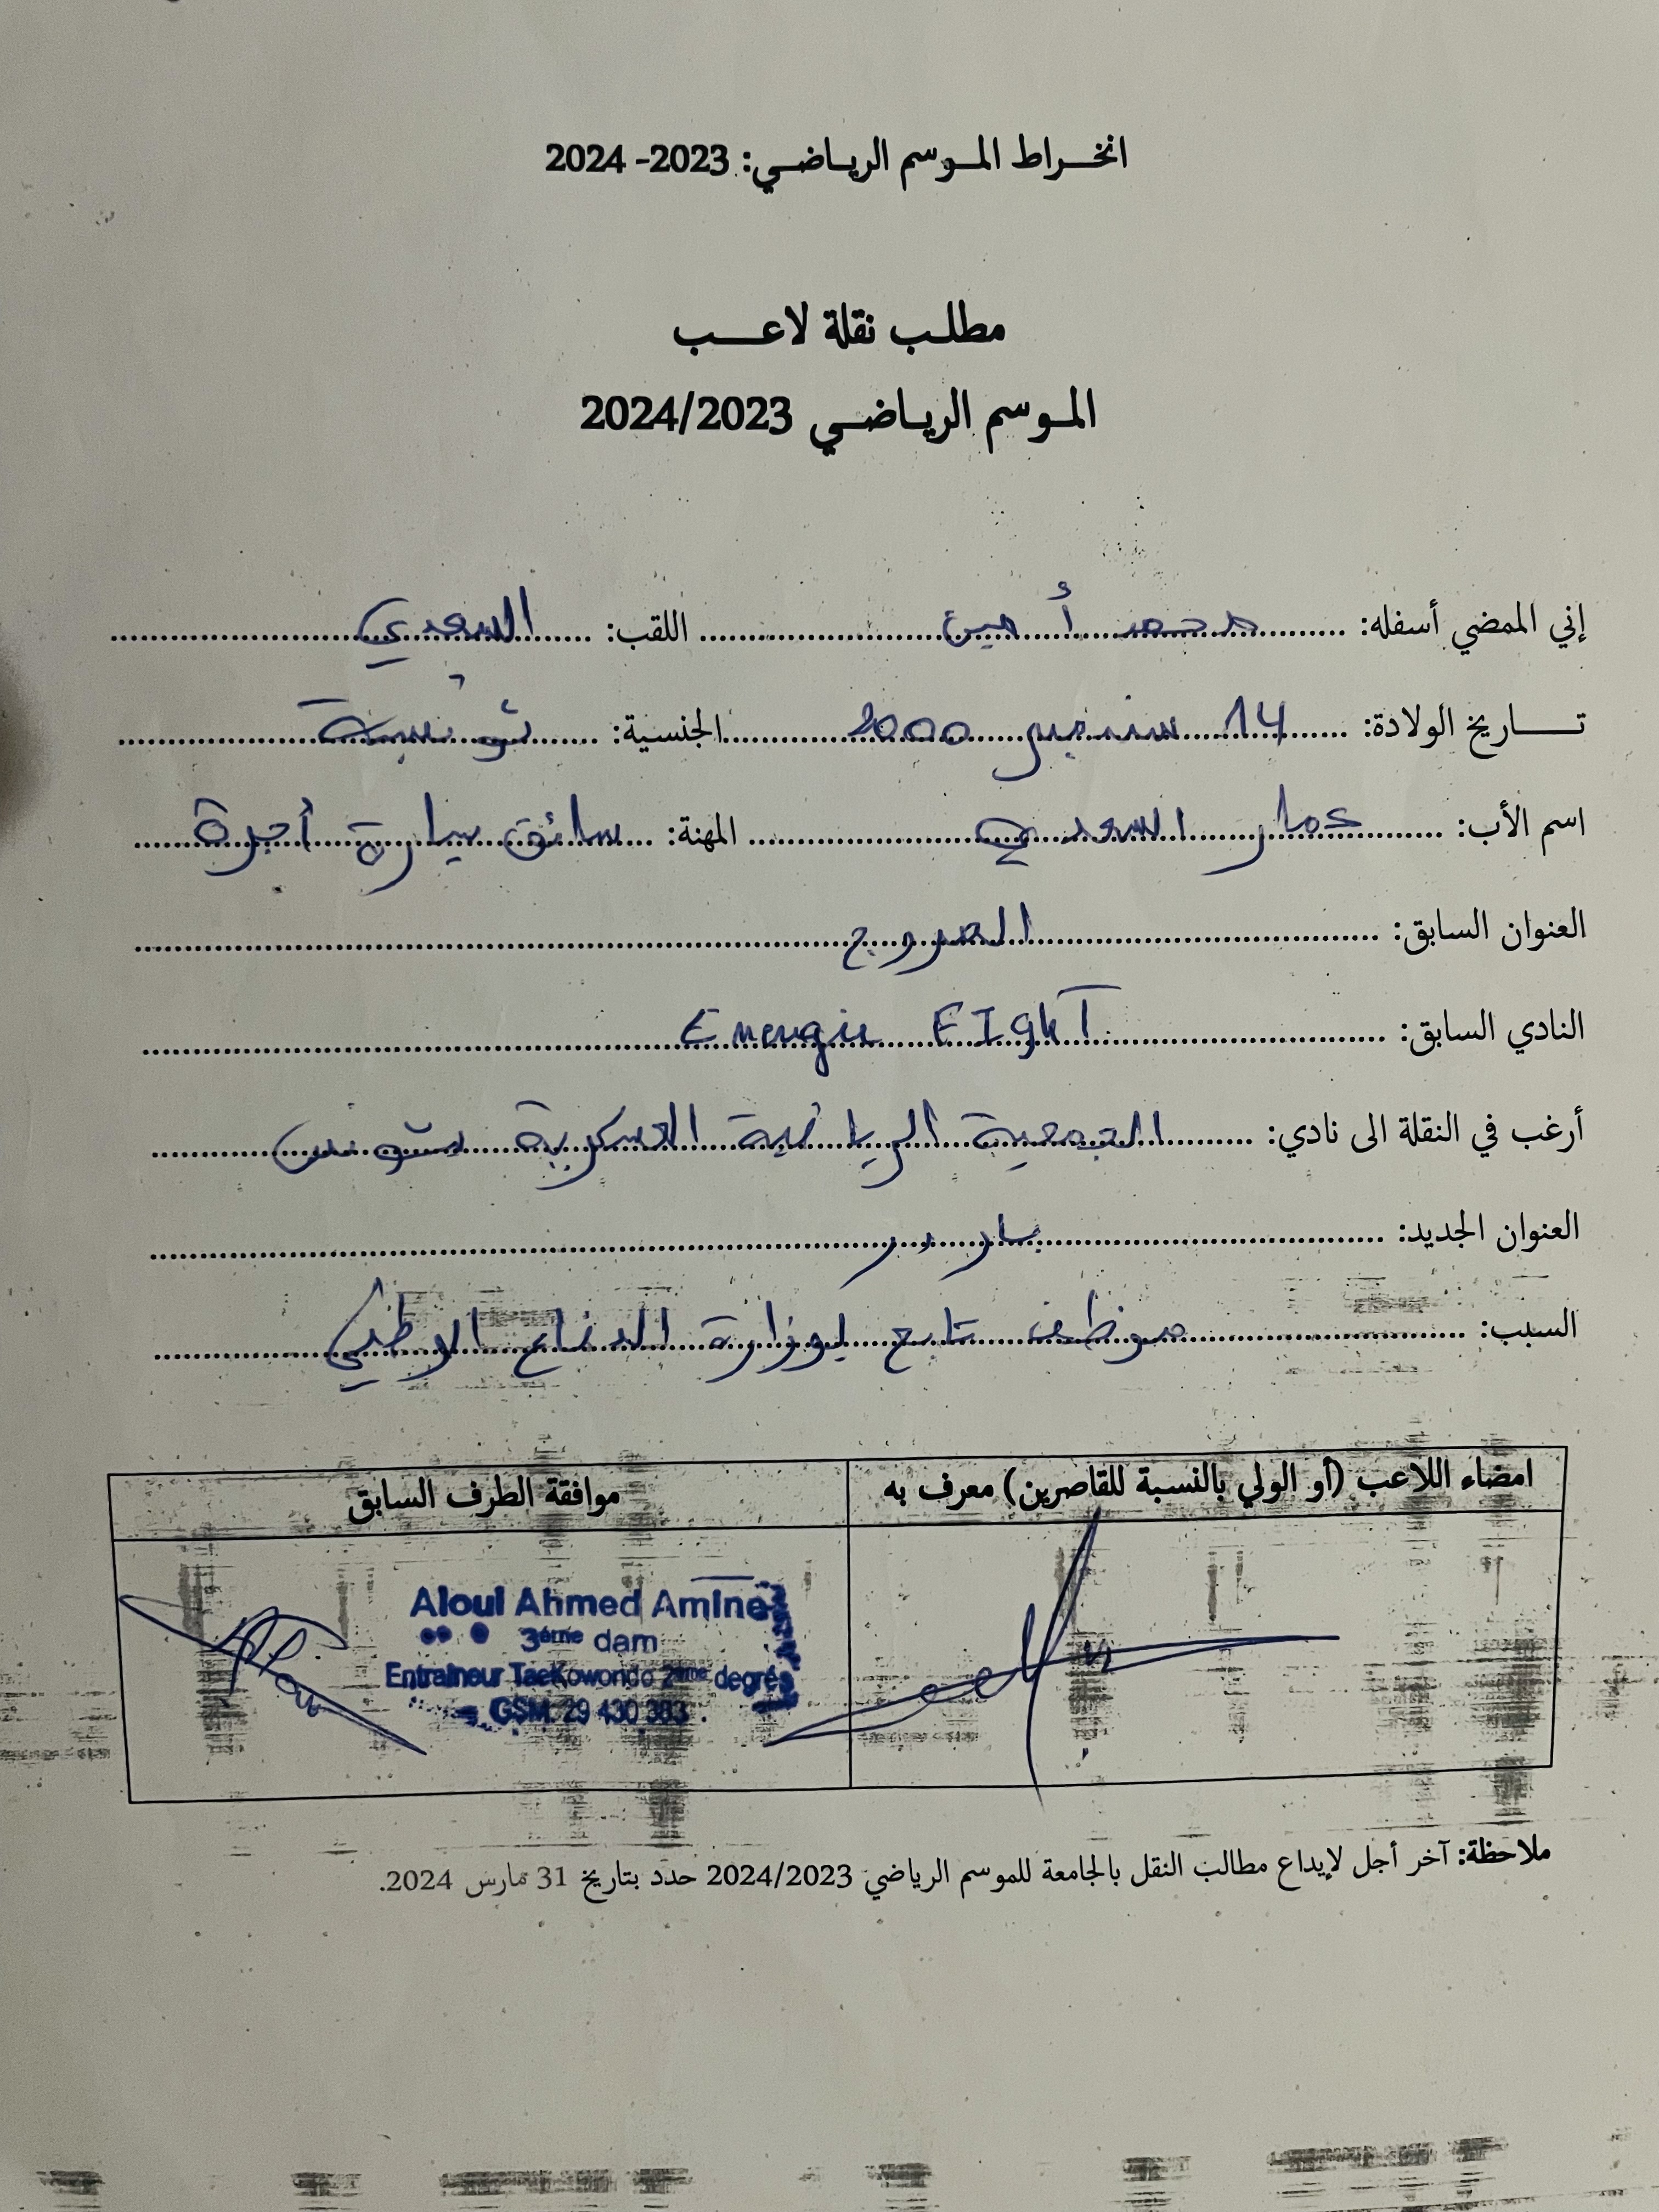 انخراط الموسم الرياضي: 2023- 2024
مطلب نقلة لاعب
الموسم الرياضي 2024/2023
إني الممضي أسفله: محمد أمين اللقب: السعدي
تاريخ الولادة: 14 سبتمبر 2000 الجنسية: تونسية
اسم الأب: عمار السعدي المهنة: سائق سيارة أجرة
العنوان السابق: المروج
النادي السابق: FIghT
أرغب في النقلة الى نادي: الجمعية الرياضية العسكرية بتونس
العنوان الجديد:
السبب: موظف تابع لوزارة الدفاع الوطني
امضاء اللاعب (أو الولي بالنسبة للقاصرين) معرف به
موافقة الطرف السابق
Aloui Ahmed Amine
3éme dam
Entraineur TaeKowondo 2éme degrés
GSM: 29 430 383
ملاحظة: آخر أجل لإيداع مطالب النقل بالجامعة للموسم الرياضي 2024/2023 حدد بتاريخ 31 مارس 2024.